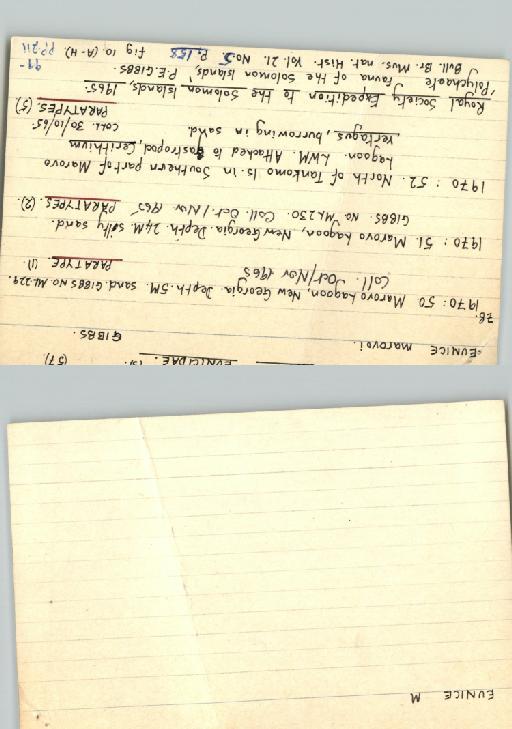 EUNICIDAE. (3). (57)
EUNICE marovoi. GIBBS.
78.
1970: 50 Marovo Lagoon, New Georgia Depth. 5M. sand. GIBBS No. ML.229.
Coll. Oct/Nov 1965 PARATYPE (1)
1970: 51. Marovo Lagoon, New Georgia. Depth. 24M. silty sand.
GIBBS. No. ML.230. Coll. Oct./Nov 1965 PARATYPES. (2).
1970: 52. North of Tankomo Is. in Southern part of Marovo
Lagoon. LWM. Attached to Gastropod, Cerithium
vertagus, burrowing in sand. Coll. 30/10/65
PARATYPES. (5)
Royal Society Expedition to the Solomon Islands, 1965.
'Polychaete fauna of the Solomon Islands,' P.E. GIBBS.
Bull. Br. Mus. nat. Hist. Vol. 21. No. 5 P. 158 fig 10 (A-H) PP. 211
EUNICE M